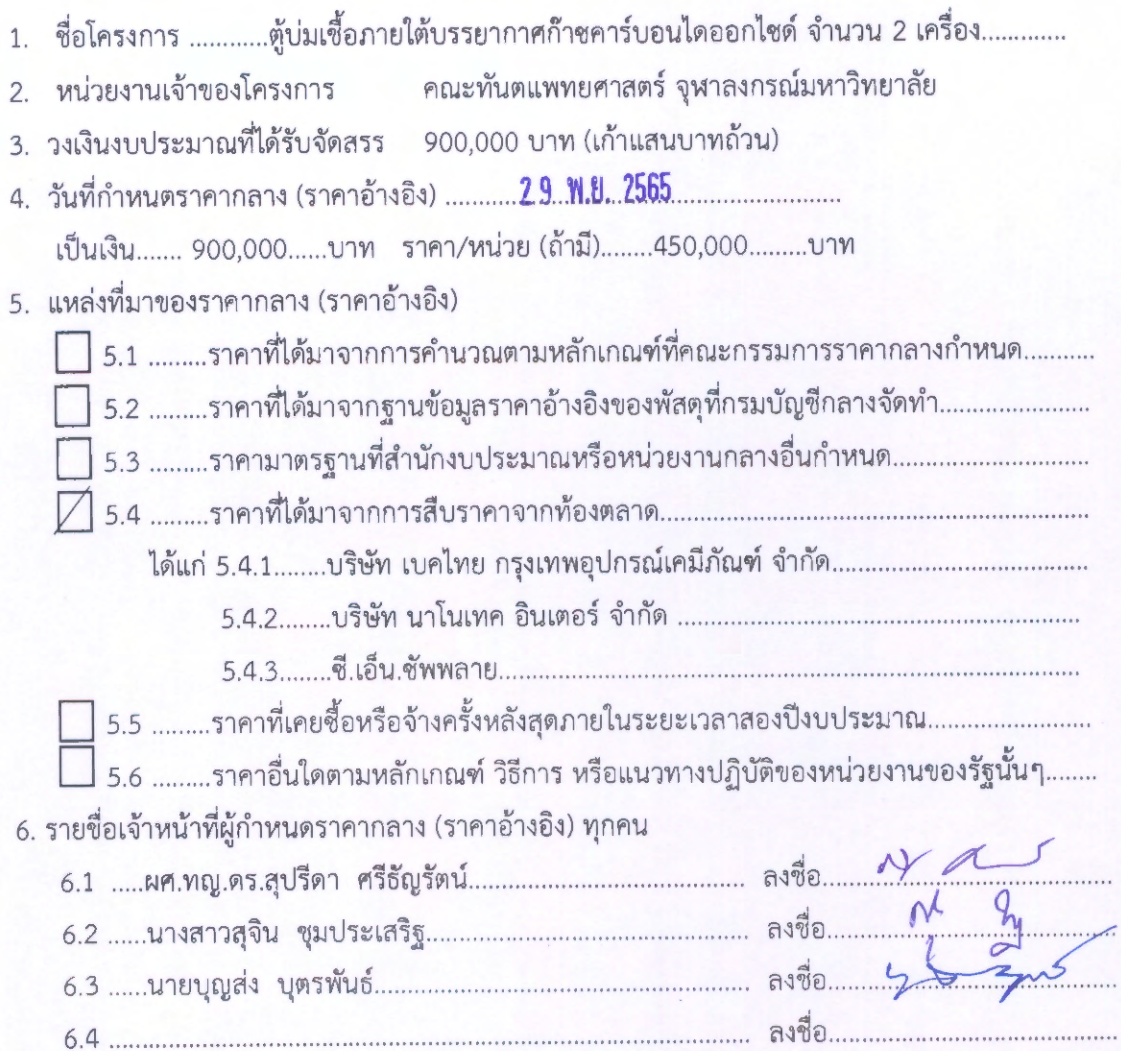 1. ชื่อโครงการ ............ตู้บ่มเชื้อภายใต้บรรยากาศก๊าซคาร์บอนไดออกไซด์ จำนวน 2 เครื่อง.............
2. หน่วยงานเจ้าของโครงการ คณะทันตแพทยศาสตร์ จุฬาลงกรณ์มหาวิทยาลัย
3. วงเงินงบประมาณที่ได้รับจัดสรร 900,000 บาท (เก้าแสนบาทถ้วน)
4. วันที่กำหนดราคากลาง (ราคาอ้างอิง) ...........29 พ.ย. 2565..........................
เป็นเงิน....... 900,000......บาท ราคา/หน่วย (ถ้ามี)........450,000.........บาท
5. แหล่งที่มาของราคากลาง (ราคาอ้างอิง)
5.1 .........ราคาที่ได้มาจากการคำนวณตามหลักเกณฑ์ที่คณะกรรมการราคากลางกำหนด...........
5.2 .........ราคาที่ได้มาจากฐานข้อมูลราคาอ้างอิงของพัสดุที่กรมบัญชีกลางจัดทำ.......................
5.3 .........ราคามาตรฐานที่สำนักงบประมาณหรือหน่วยงานกลางอื่นกำหนด..............................
5.4 .........ราคาที่ได้มาจากการสืบราคาจากท้องตลาด.................................................................
ได้แก่ 5.4.1........บริษัท เบคไทย กรุงเทพอุปกรณ์เคมีภัณฑ์ จำกัด.......................................
5.4.2........บริษัท นาโนเทค อินเตอร์ จำกัด .............................................................
5.4.3........ซี.เอ็น.ซัพพลาย.........................................................................................
5.5 .........ราคาที่เคยซื้อหรือจ้างครั้งหลังสุดภายในระยะเวลาสองปีงบประมาณ.........................
5.6 .........ราคาอื่นใดตามหลักเกณฑ์ วิธีการ หรือแนวทางปฏิบัติของหน่วยงานของรัฐนั้นๆ........
6. รายชื่อเจ้าหน้าที่ผู้กำหนดราคากลาง (ราคาอ้างอิง) ทุกคน
6.1 .....ผศ.ทญ.ดร.สุปรีดา ศรีธัญรัตน์.......................................... ลงชื่อ............................................
6.2 ......นางสาวสุจิน ชุมประเสริฐ.................................................. ลงชื่อ............................................
6.3 ......นายบุญส่ง บุตรพันธ์.......................................................... ลงชื่อ............................................
6.4 .................................................................................................. ลงชื่อ............................................